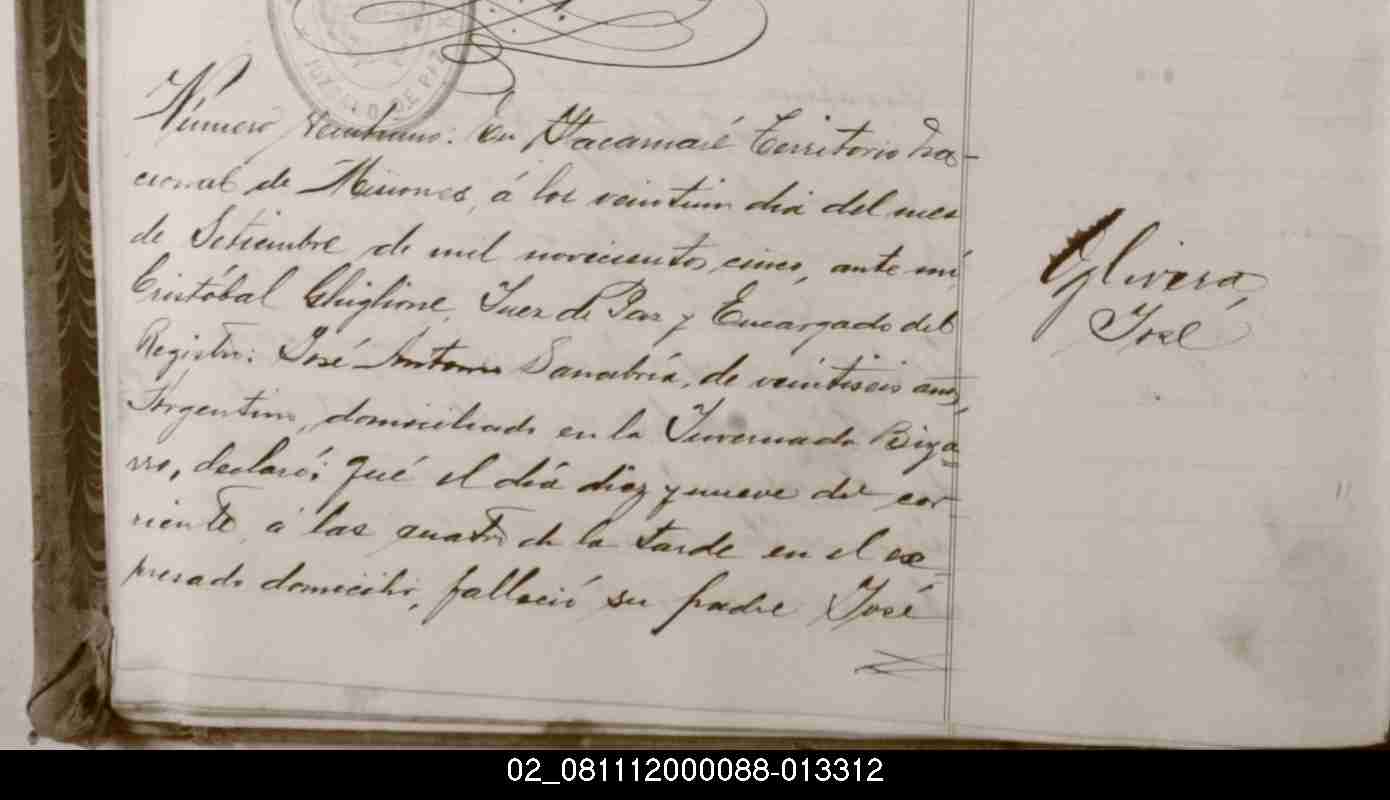 JUZGADO DE PAZ
Número veintiuno: En Itacaruaré Territorio Na-
cional de Misiones, á los veintiun dia del mes
de Setiembre de mil novecientos cinco, ante mi,
Cristóbal Ghiglione, Juez de Paz y Encargado del
Registro: José Antonio Sanabria, de veintiseis años,
Argentino, domiciliado en la Invernada Biga-
rro, declaró: Qué el día diez y nueve del cor-
riente, á las cuatro de la tarde en el ex-
presado domicilio, falleció su padre José
Olivera,
José
02_081112000088-013312